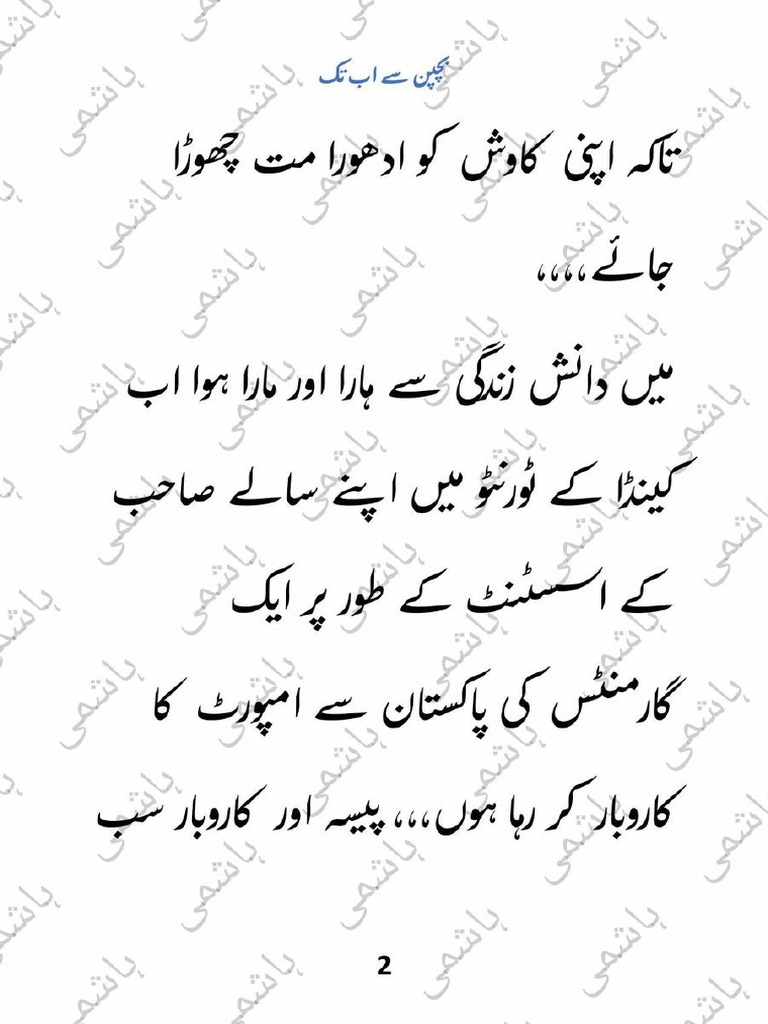 بچپن سے اب تک
تاکہ اپنی کاوش کو ادھورا مت چھوڑا
جائے،،،،
میں دانش زندگی سے ہارا اور مارا ہوا اب
کینڈا کے ٹورنٹو میں اپنے سالے صاحب
کے اسسٹنٹ کے طور پر ایک
گارمنٹس کی پاکستان سے امپورٹ کا
کاروبار کر رہا ہوں،،،پیسہ اور کاروبار سب
2
ہاشمی